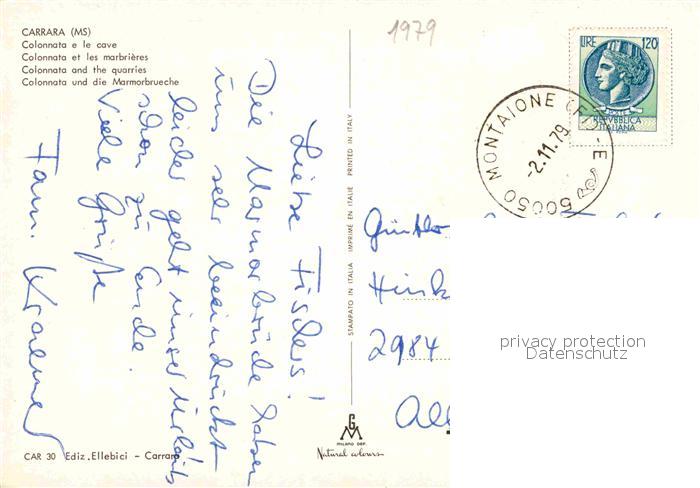 CARRARA (MS)
Colonnata e le cave
Colonnata et les marbrières
Colonnata and the quarries
Colonnata und die Marmorbrueche
1979
LIRE 120
REPVBBLICA
ITALIANA
50050 MONTAIONE
-2.11.79
Liebe Fislers!
Die Marmorbrüche haben
uns sehr beeindruckt
leider geht unser Urlaub
schon zu Ende.
Viele Grüße
Fam. Kraemer
STAMPATO IN ITALIA IMPRIMÉ EN ITALIE PRINTED IN ITALY
2984
privacy protection
Datenschutz
GM
MILANO DEP.
Natural colours
CAR 30 Ediz. Ellebici - Carrara